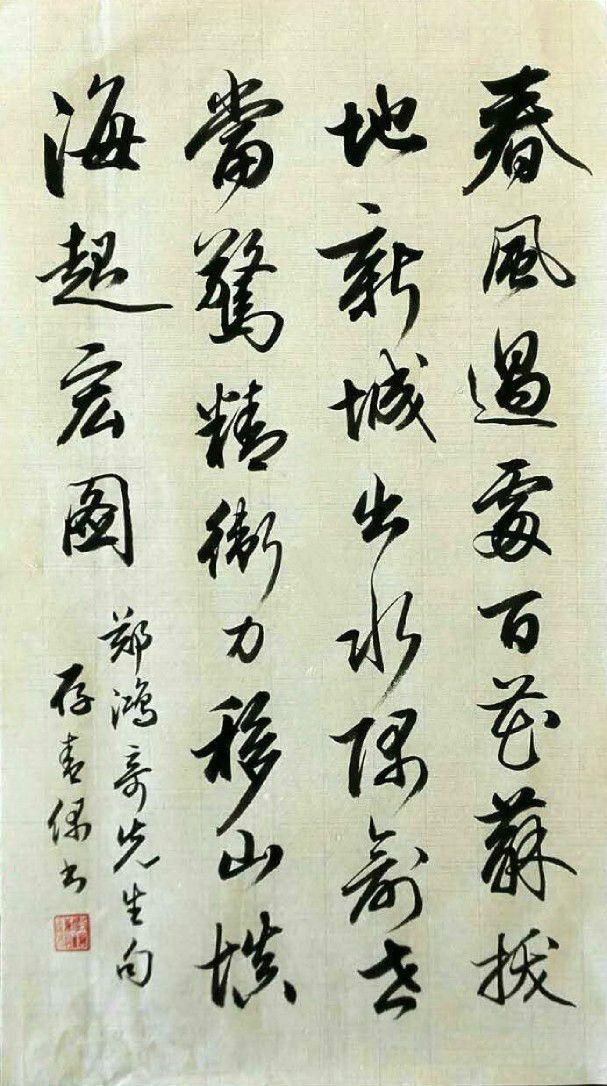 春風過處百花蘇拔
地新城出水隅俞世
當驚精衛力移山填
海起宏圖
郑鴻奇先生句
存青保书